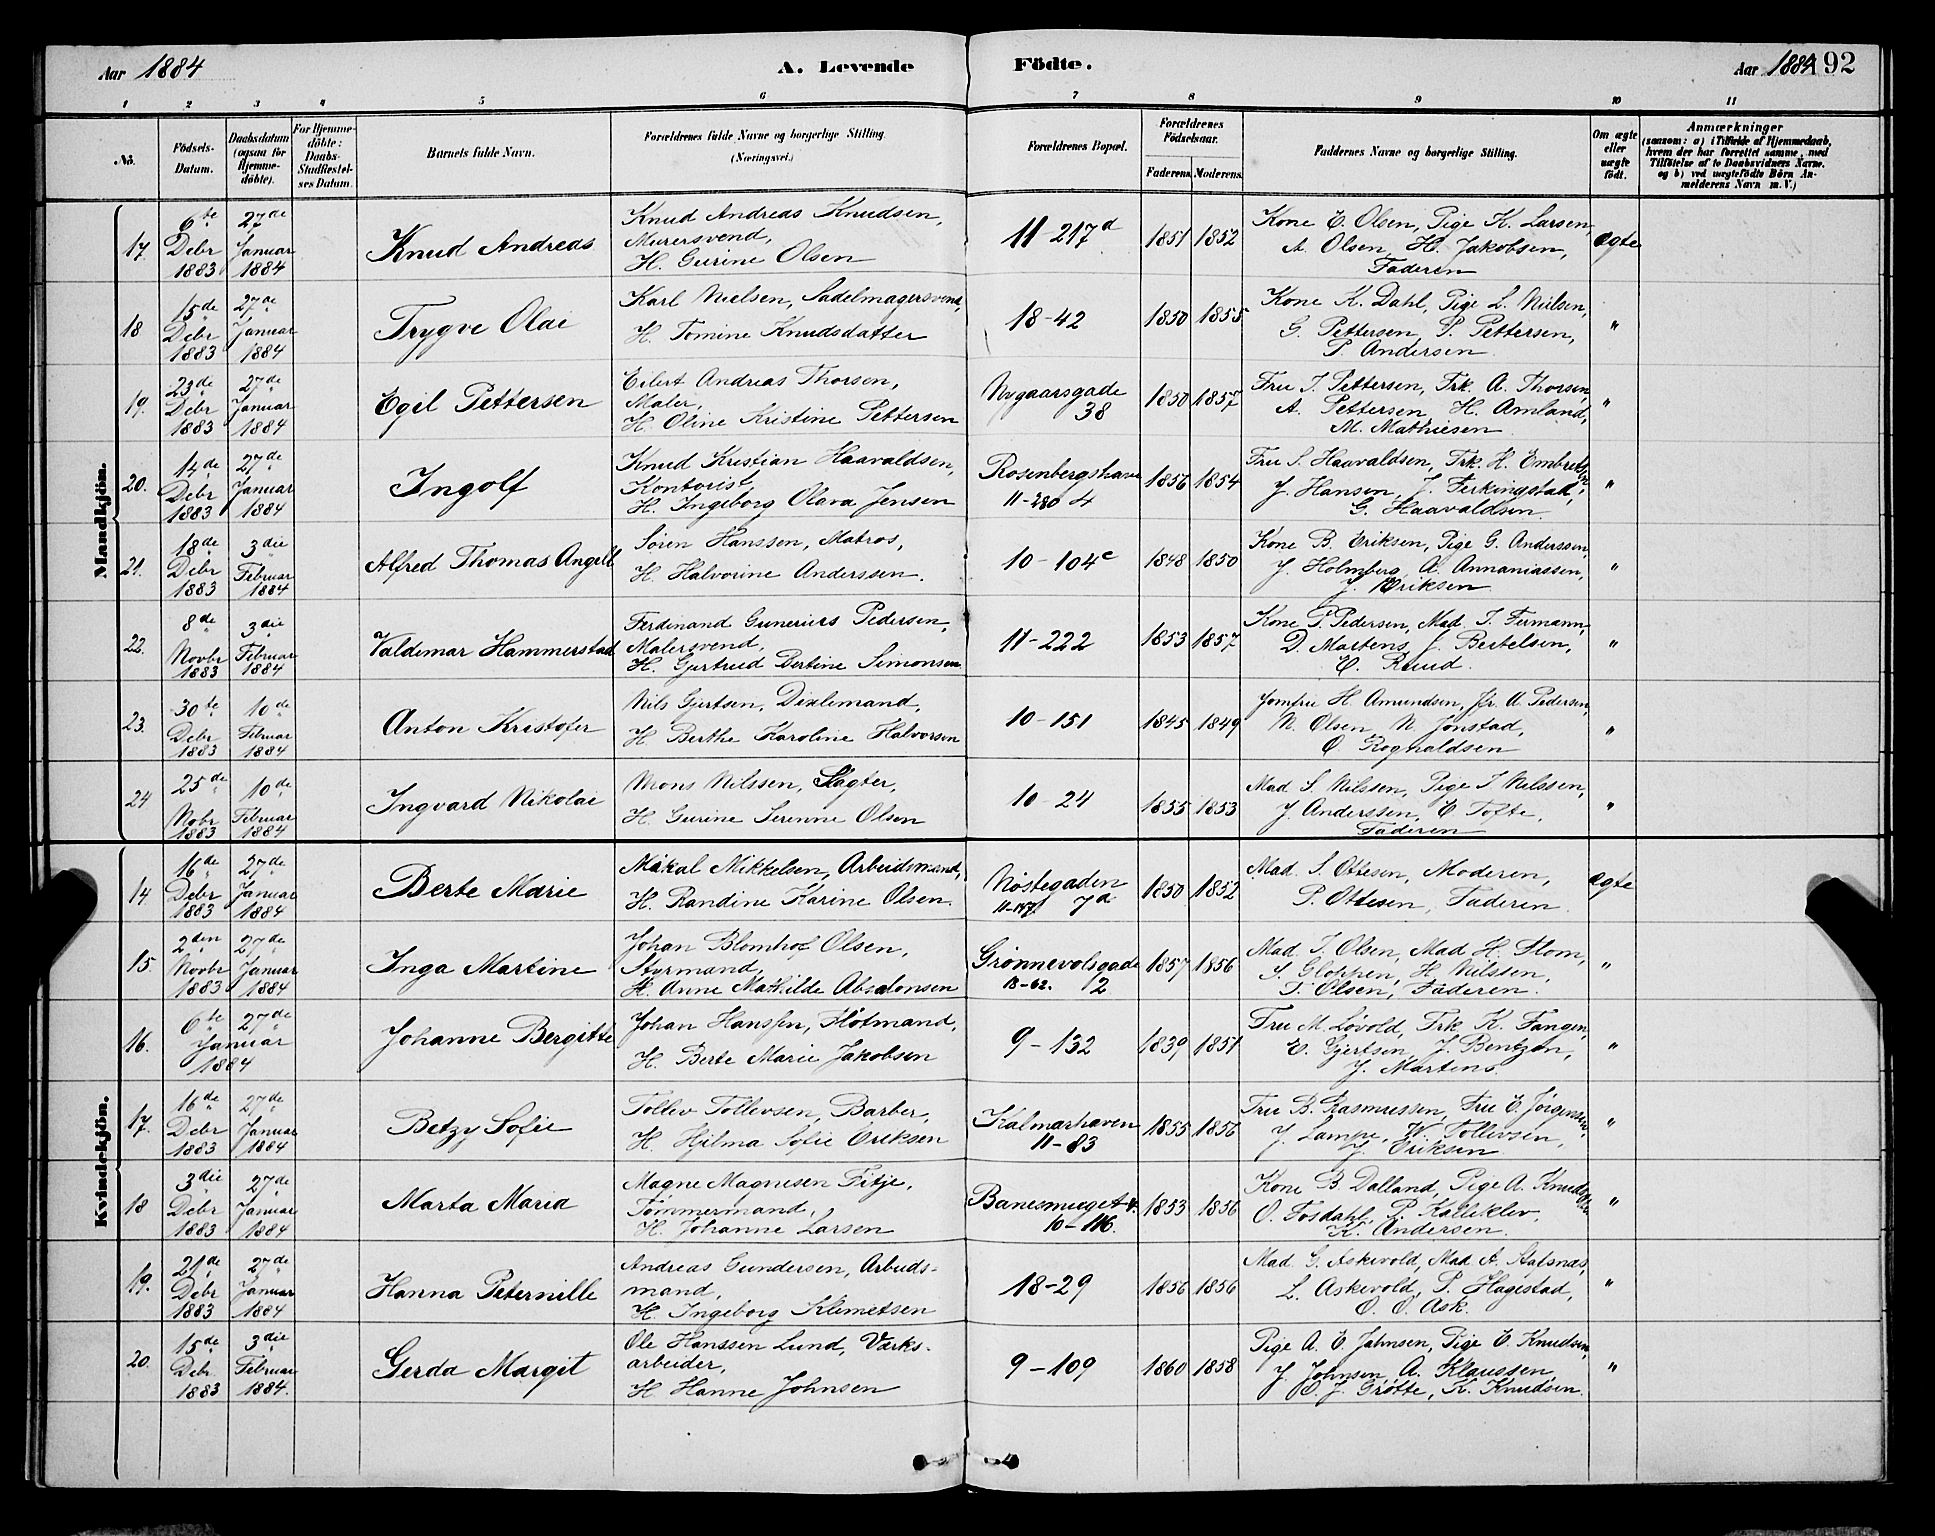 Aar 1884
A. Levende
Födte.
Aar 1884
192
1 2 3 4 5 6 7 8 9 10 11
No.
Födsels-Datum.
Daabsdatum (ogsaa för Hjemme-döbte).
For Hjemme-döbte: Daabs-Stadfæstel-ses Datum.
Barnets fulde Navn.
Forældrenes fulde Navne og borgerlige Stilling. (Næringsvei.)
Forældrenes Bopæl.
Forældrenes Födselsaar.
Faderens. Moderens.
Faddernes Navne og borgerlige Stilling.
Om ægte eller uægte födt.
Anmærkninger
(saasom: a) i Tilfælde af Hjemmedaab, hvem der har forrettet samme, med Tilföielse af to Daabsvidners Navne. og b) ved uægtefödte Börn An-melderens Navn m. V.)
Mandkjön.
17. 6te Debr 1883 27de Januar 1884
Knud Andreas
Knud Andreas Knudsen,
Murersvend,
H. Gurine Olsen
11-217d 1851 1852
Kone E. Olsen, Pige K. Larsen,
A. Olsen, H. Jakobsen,
Faderen
ægte
18 15de Debr 1883 27de Januar 1884
Trygve Olai
Karl Nielsen, Sadelmagersvend,
H. Tomine Knudsdatter
18-42 1850 1855
Kone K. Dahl, Pige L. Nielsen,
G. Pettersen, P. Pettersen,
P. Andersen
"
19. 23de Debr 1883 27de Januar 1884
Egil Pettersen
Eilert Andreas Thorsen,
Maler,
H. Oline Kristine Pettersen
Nygaarsgade
38
1850 1857
Fru J. Pettersen, Frk. A. Thorsen,
A. Pettersen, H. Amland,
M. Mathiesen
"
20. 14de Debr 1883 27de Januar 1884
Ingolf
Knud Kristian Haavaldsen,
Kontorist,
H. Ingeborg Olava Jensen
Rosenbergshaven
11-280 4
1856 1854
Fru S. Haavaldsen, Frk. H. Embretsen,
J. Hansen, J. Ferkingstad,
G. Haavaldsen
"
21. 18de Debr 1883 3die Februar 1884
Alfred Thomas Angell
Søren Hanssen, Matros,
H. Halvorine Anderssen.
10-104c 1848 1850
Kone B. Eriksen, Pige G. Anderssen,
J. Holmberg, A. Annaniassen,
J. Eriksen
"
22. 8de Novbr 1883 3die Februar 1884
Valdemar Hammerstad
Ferdinand Gunerius Pedersen,
Malersvend,
H. Gjertrud Bertine Simonsen
11-222 1853 1857
Kone P. Pedersen, Mad. T. Fermann,
D. Martens, J. Bertelsen,
E. Ruud.
"
23. 30te Debr 1883 10de Februar 1884
Anton Kristofer
Nils Gjertsen, Dixlemand,
H. Berthe Karoline Halvorsen
10-151 1845 1849
Jomfru H. Amundsen, Jfr. A. Pedersen,
N. Olsen, N. Jonstad,
O. Rognaldsen
"
24 25de Nobr 1883 10de Februar 1884
Ingvard Nikolai
Mons Nilssen, Slagter,
H. Gurine Serenne Olsen
10-24 1855 1853
Mad. S. Nilssen, Pige J. Nilssen,
J. Anderssen, E. Tofte,
Faderen
"
Kvindekjön.
14. 16de Debr 1883 27de Januar 1884
Berte Marie
Mikal Mikkelsen, Arbeidsmand,
H. Randine Karine Olsen.
Nøstegaden
11-147 7a
1850 1852
Mad. S. Ottesen, Moderen,
P. Ottesen, Faderen.
ægte
15. 2den Novbr 1883 27de Januar 1884
Inga Martine
Johan Blomhof Olsen,
Styrmand,
H. Anne Mathilde Absalonsen
Grønnevolsgade
18-62. 2
1857 1856
Mad. J. Olsen, Mad. H. Flom,
S. Gloppen, H. Nilssen,
T. Olsen, Faderen.
"
16. 6te Januar 1884 27de
Johanne Bergitte
Johan Hanssen, Flotmand,
H. Berte Marie Jakobsen
9-132 1839 1851
Fru M. Løvold, Frk. K. Fangen,
E. Gjertsen, J. Bentzen,
J. Martens.
"
17. 16de Debr 1883 27de Januar 1884
Betzy Sofie
Tollev Tollevsen, Barber,
H. Hjilma Sofie Eriksen
Kalmarhaven
11-83
1855 1856
Fru B. Rasmussen, Fru E. Jörgensen,
J. Lampe, W. Tollevsen,
J. Eriksen
"
18 3die Debr 1883 27de Januar 1884
Marta Maria
Magne Magnesen Fitje,
Tømmermand,
H. Johanne Larsen
Banesmuget 4.
10-116.
1853 1856
Kone B. Dalland, Pige A. Knudsen,
O. Fosdahl, P. Kalleklev,
K. Andersen.
"
19. 21de Debr 1883 27de Januar 1884
Hanna Peternille
Andreas Gundersen, Arbeids-
mand,
H. Ingeborg Klemetsen
18-29 1856 1856
Mad. G. Askevold, Mad. A. Aalsnæs,
L. Askevold, P. Hagestad,
O. O. Ask.
"
20. 15de Debr. 1883 3die Februar 1884.
Gerda Margit
Ole Hanssen Lund, Værks-
arbeider,
H. Hanne Johnsen
9-109 1860 1858
Pige A. E. Jahnsen, Pige E. Knudsen,
J. Johnsen, A. Klaussen,
O. J. Grøtte, K. Knudsen.
"